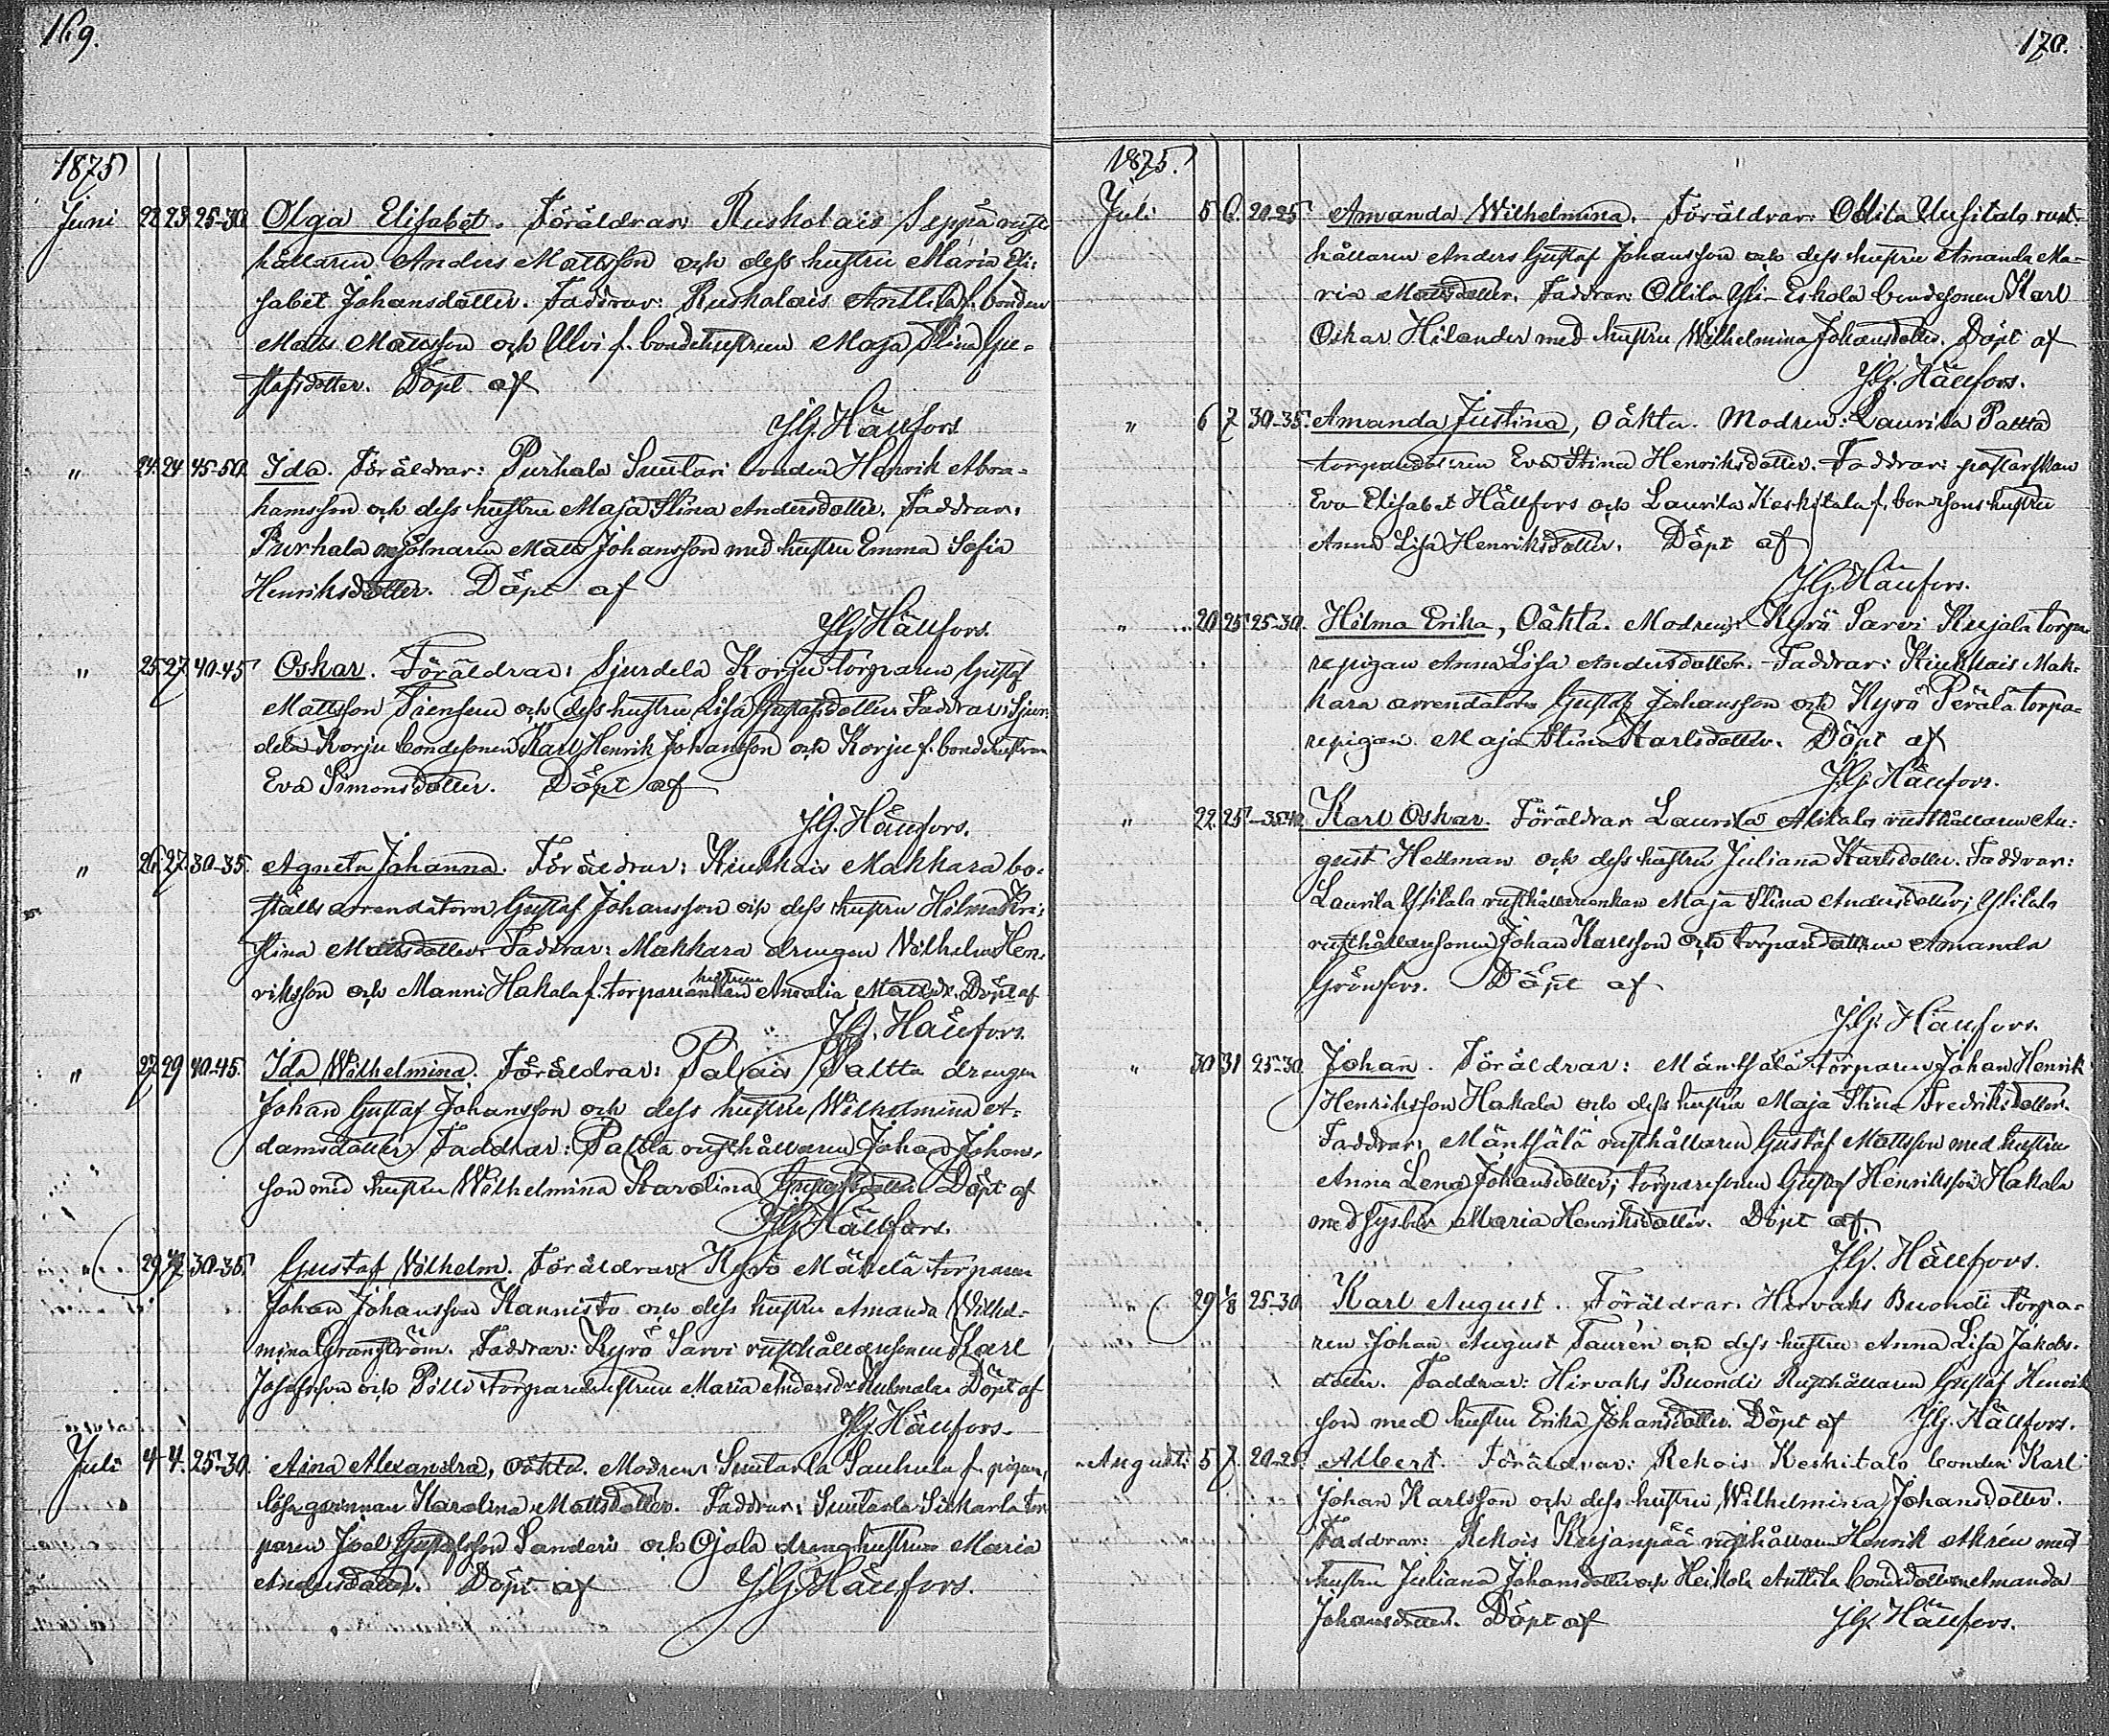 169.
1875
Juni 22 23 25-30 Olga Elisabet. Föräldrar: Ruskolais Seppä rust-
hållaren Anders Mattsson och dess hustru Maria Eli-
sabet Johansdotter. Faddrar: Ruskolais Anttila f. bonden
Matts Mattsson och Ulvi f. bondehustrun Maja Stina Gu-
stafsdotter. Döpt af
J.G. Hällfors
" 24 24 45-50. Ida. Föräldrar: Purhala Suutari bonden Henrik Abra-
hamsson och dess hustru Maja Stina Andersdotter. Faddrar:
Purhala mjölnaren Matts Johansson med hustru Emma Sofia
Henriksdotter. Döpt af
J.G. Hällfors.
" 25 27 40-45 Oskar. Föräldrar: Sjurdela Korju torparen Gustaf
Mattsson Fiensen och dess hustru Lisa Gustafsdotter. Faddrar: Sjur-
dela Korju bondesonen Karl Henrik Johansson och Korju f. bondehustrun
Eva Simonsdotter. Döpt af
J.G. Hällfors.
" 26 27 30-35. Agneta Johanna. Föräldrar: Kiukais Makkara bo-
ställs arrendatorn Gustaf Johansson och dess hustru Hilma Kri-
stina Mattsdotter. Faddrar: Makkara drengen Vilhelm Hen-
riksson och Manni Hakala f. torparehustrun Amalia Mattsdr. Döpt af
J.G. Hällfors.
" 27 29 40-45. Ida Wilhelmina. Föräldrar: Paltta drengen
Johan Gustaf Johansson och dess hustru Wilhelmina A-
damsdotter. Faddrar: Paltta rusthållaren Johan Johans-
son med hustru Wilhelmina Karolina Gustafsdotter. Döpt af
J.G. Hällfors.
29 4/7 30-35. Gustaf Vilhelm. Föräldrar: Kyrö Mäkelä torparen
Johan Johansson Kannisto och dess hustru Amanda Wilhel-
mina Granström. Faddrar: Kyrö Sarvi rusthållaresonen Karl
Josefsson och Pölli torparehustrun Maria Andersdr Huhmala. Döpt af
J.G. Hällfors.
Juli 4 4. 25-30. Aina Alexandra, oäkta. Modren: Suutarla Sauhula f. pigan,
lösa qvinnan Karolina Mattsdotter. Faddrar: Suutarla Sikkarla tor-
paren Joel Gustafsson Sanderi och Ojala drenghustrun Maria
Andersdotter. Döpt af J.G. Hällfors.
170.
1875.
Juli 5 6. 20-25 Amanda Wilhelmina. Föräldrar: Ollila Uusitalo rust-
hållaren Anders Gustaf Johansson och dess hustru Amanda Ma-
ria Mattsdotter. Faddrar: Ollila Yli-Eskola bondesonen Karl
Oskar Hilander med hustru Wilhelmina Johansdotter. Döpt af
J.G. Hällfors.
" 6 7 30-35. Amanda Justina, Oäkta. Modren: Laurila Paltta
torpardottren Eva Stina Henriksdotter. Faddrar: pastorskan
Eva Elisabet Hällfors och Laurila Keskitalo f. bondesons hustru
Anna Lisa Henriksdotter. Döpt af
J.G. Hällfors.
" 20 25 25-30. Hilma Erika, Oäkta. Modren: Kyrö Sarvi Kujala torpa-
repigan Anna Lisa Andersdotter. Faddrar: Kiukais Mak-
kara arrendatorn Gustaf Johansson och Kyrö Perälä torpa-
repigan Maja Stina Karlsdotter. Döpt af
J.G. Hällfors.
" 22 25 35-40 Karl Oskar. Föräldrar Laurila Alitalo rusthållaren Au-
gust Hellman och dess hustru Juliana Karlsdotter. Faddrar:
Laurila Ylitalo rusthållareenkan Maja Stina Andersdotter; Ylitalo
rusthållaresonen Johan Karlsson och torparedottren Amanda
Grönfors. Döpt af
J.G. Hällfors.
" 30 31 25-30. Johan. Föräldrar: Mäntsälä torparen Johan Henrik
Henriksson Hakala och dess hustru Maja Stina Fredriksdotter.
Faddrar: Mäntsälä rusthållaren Gustaf Mattsson med hustru
Anna Lena Johansdotter; torparesonen Gustaf Henriksson Hakala
med syster Maria Henriksdotter. Döpt af
J.G. Hällfors.
" 29 1/8 25-30. Karl August. Föräldrar: Hirvaks Buondi torpa-
ren Johan August Taurén och dess hustru Anna Lisa Jakobs-
dotter. Faddrar: Hirvaks Buondi Rusthållaren Gustaf Henrik
son med hustru Erika Johansdotter. Döpt af J.G. Hällfors.
Augusti 5 7. 20-25 Albert. Föräldrar: Rekois Keskitalo bonden Karl
Johan Karlsson och dess hustru Wilhelmina Johansdotter.
Faddrar: Rekois Kujanpää rusthållaren Henrik Ahrén med
hustru Juliana Johansdotter och Heikola Anttila bondedottren Amanda
Johansdotter. Döpt af J.G. Hällfors.